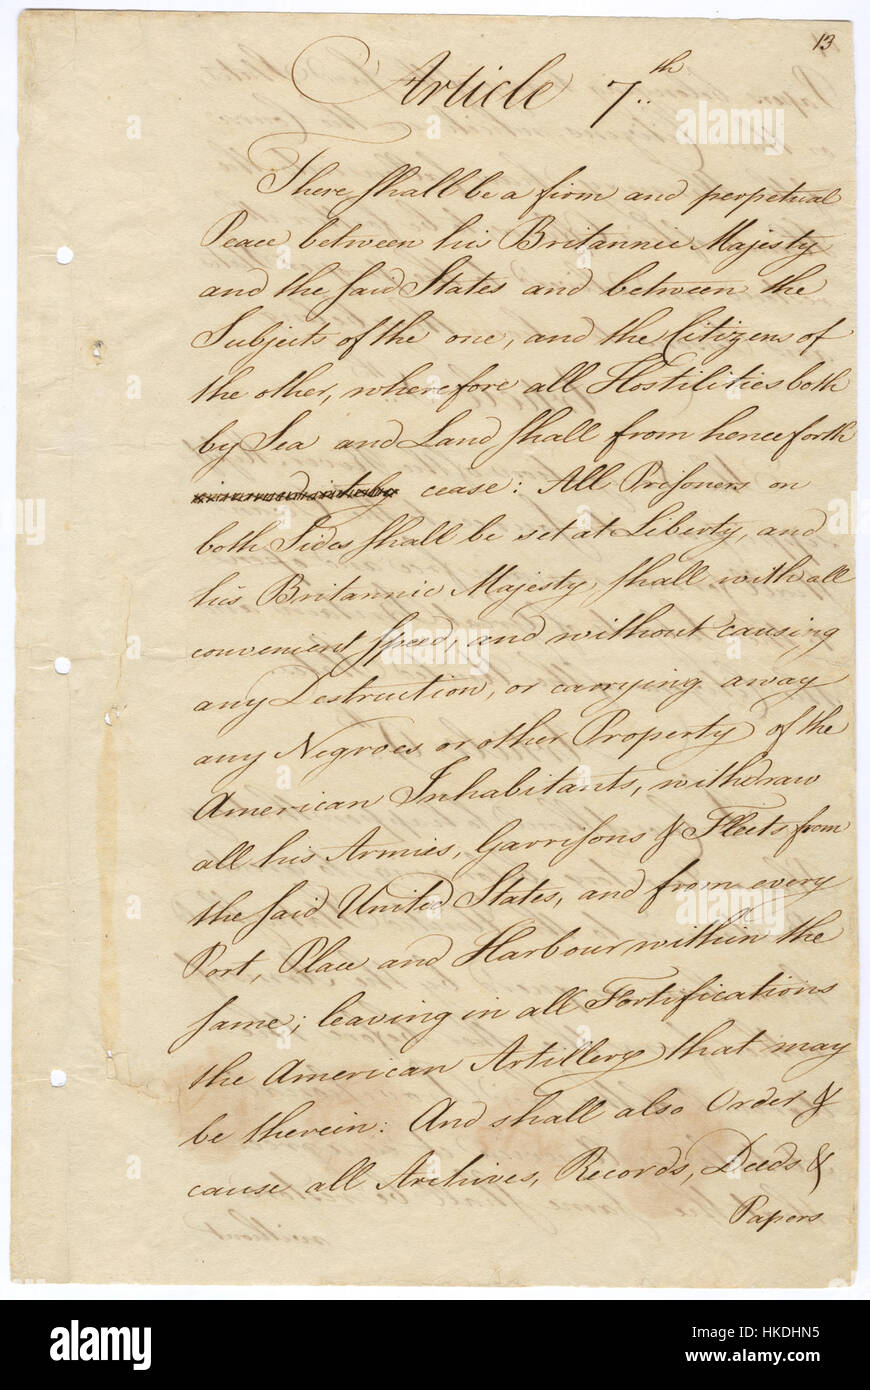 13
Article 7..th
There shall be a firm and perpetual
Peace between his Britannic Majesty
and the said States and between the
Subjects of the one, and the Citizens of
the other, wherefore all Hostilities both
by Sea and Land shall from henceforth
immediately cease: All Prisoners on
both Sides shall be set at Liberty, and
his Britannic Majesty, shall with all
convenient speed, and without causing
any Destruction, or carrying away
any Negroes or other Property of the
American Inhabitants, withdraw
all his Armies, Garrisons & Fleets from
the said United States, and from every
Port, Place and Harbour within the
same; leaving in all Fortifications
the American Artillery that may
be therein: And shall also Order &
cause all Archives, Records, Deeds &
Papers
alamy
Image ID: HKDHN5
www.alamy.com